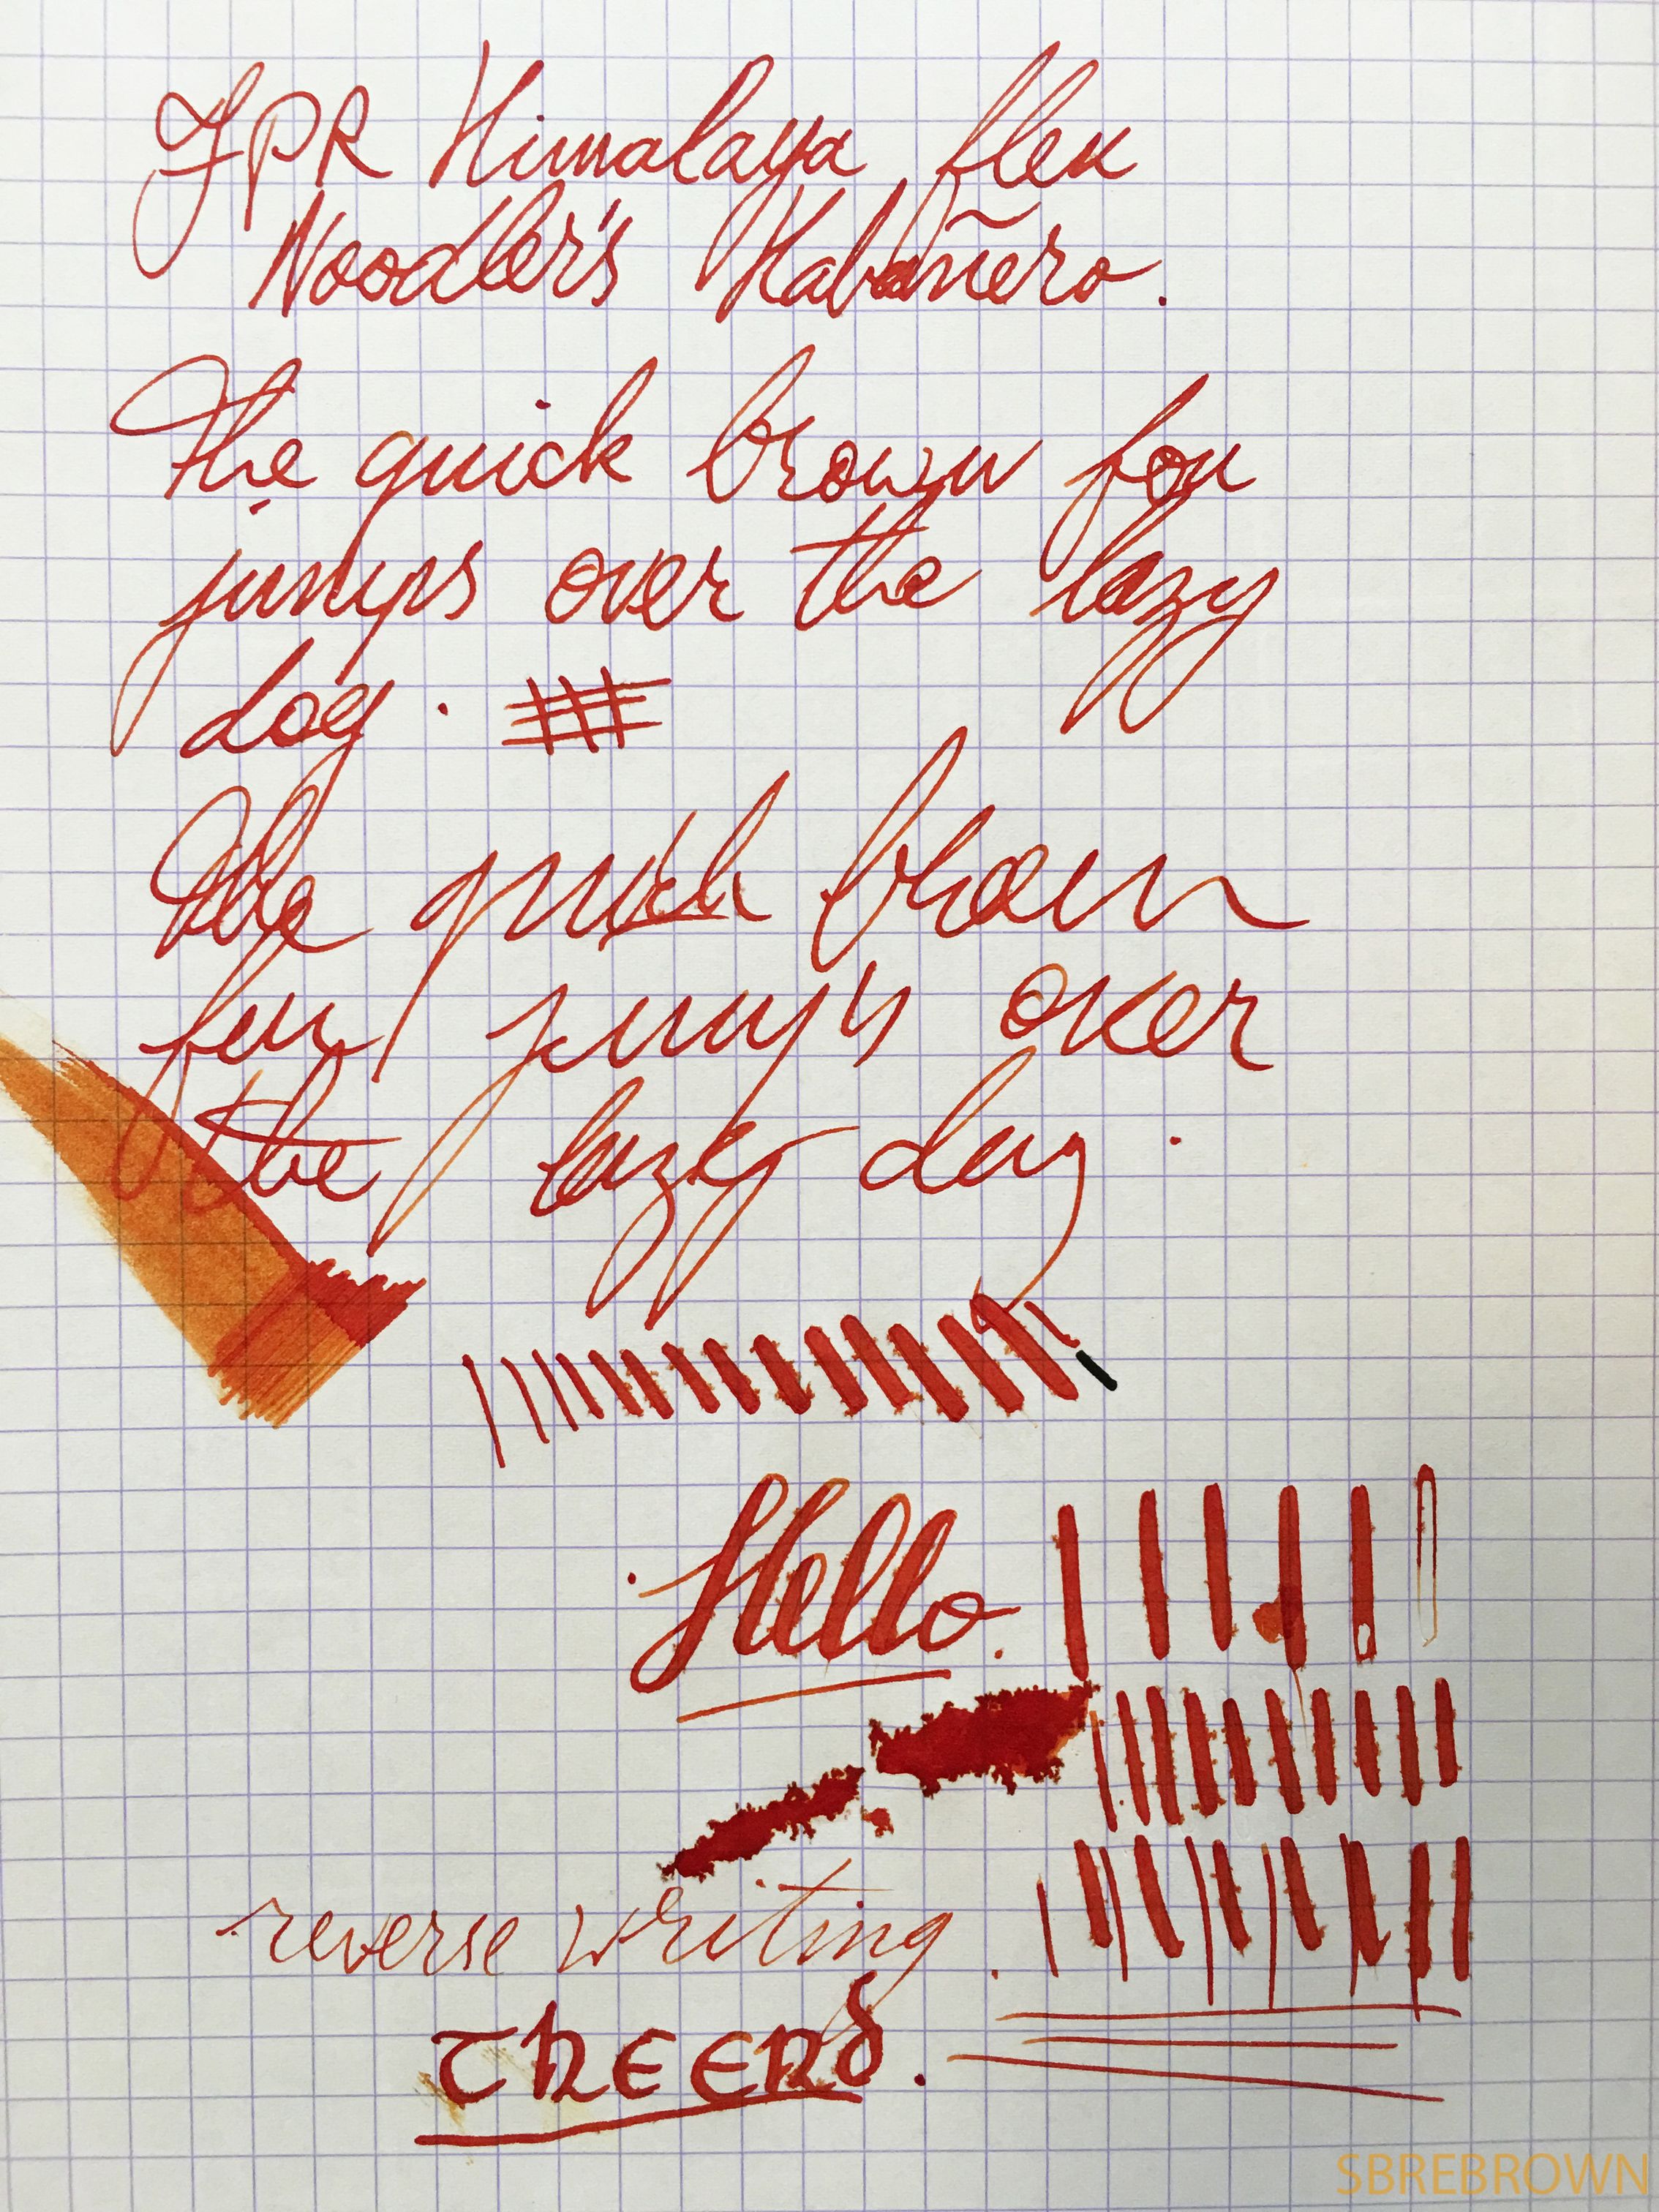 FPR Himalaya flex
Noodler's Habañero.
The quick brown fox
jumps over the lazy
dog.
The quick brown
fox jumps over
the lazy dog.
Hello.
reverse writing.
THE END.
SBREBROWN